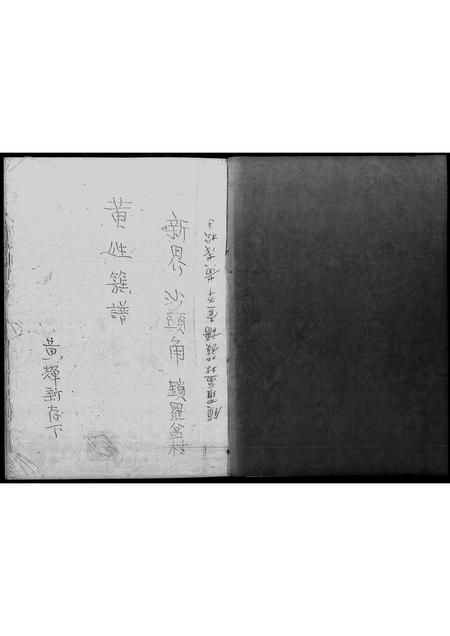 新界 沙頭角 鎖羅盆村
黃姓簇譜
黃輝新存下